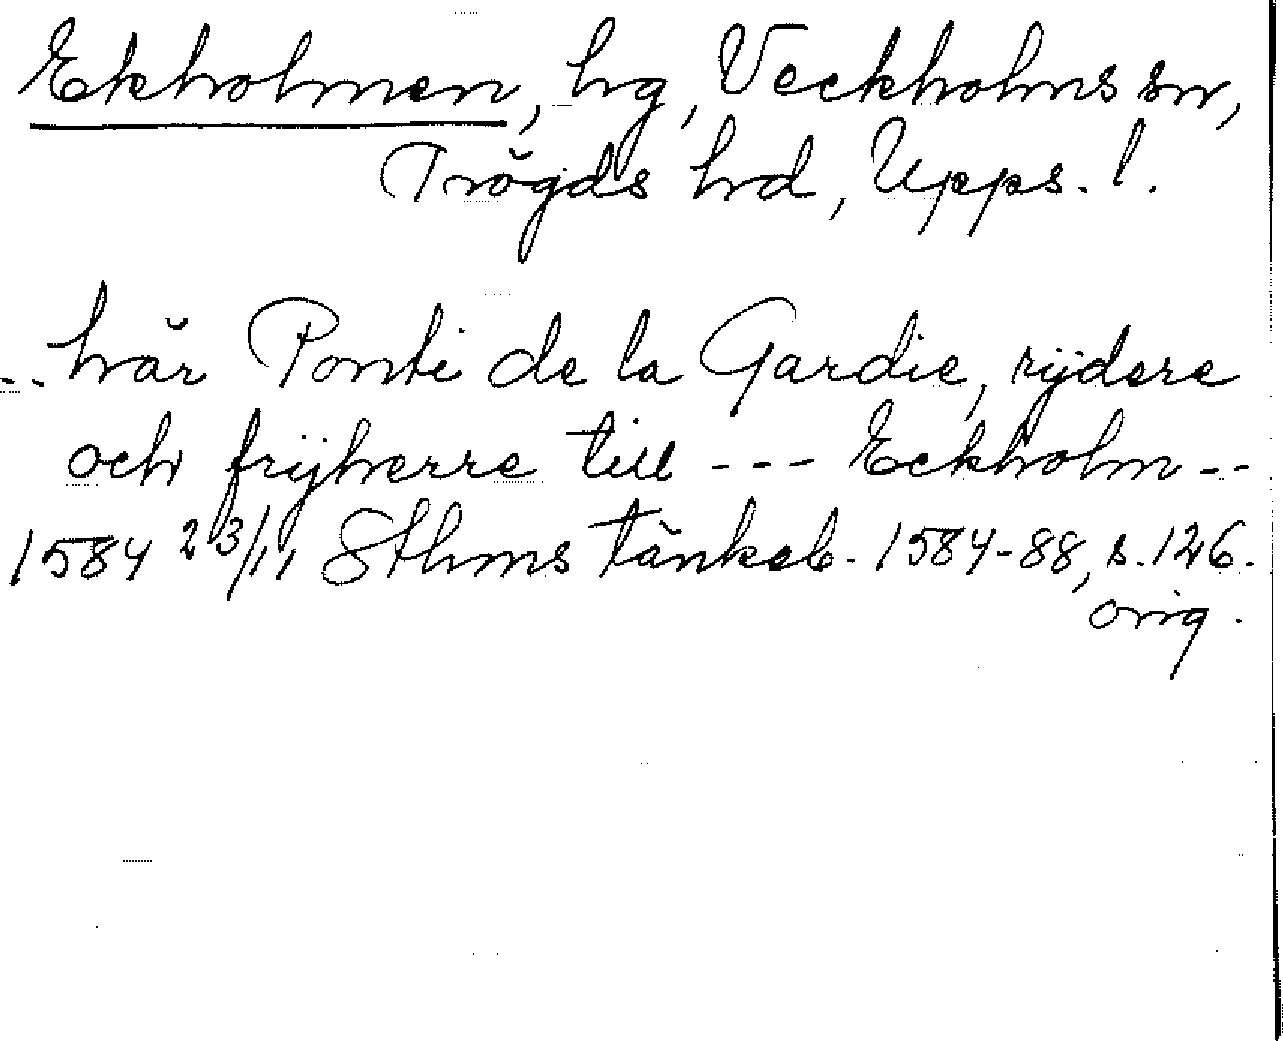 Ekholmen, hg, Veckholms sn,
Trögds hd, Upps. l.
-- här Ponti de la Gardie, rijdere
och frijherre till --- Eckholm --
1584 23/11 Sthms tänkeb. 1584-88, s. 126.
orig.